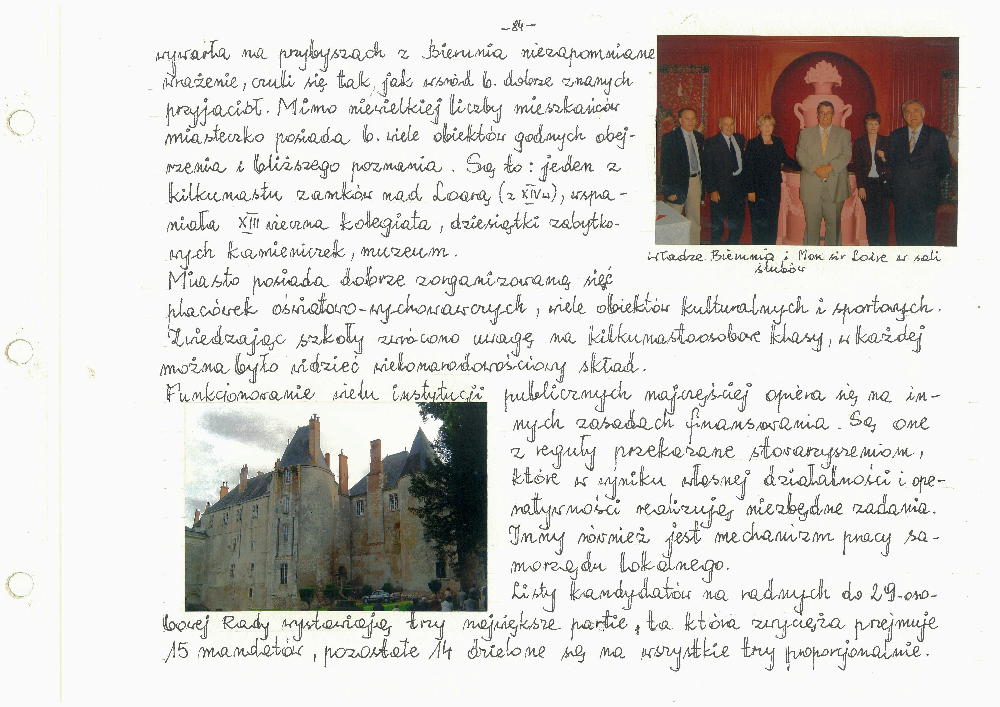 -84-
wywarła na przybyszach z Bierunia niezapomniane
wrażenie, czuli się tak, jak wśród b. dobrze znanych
przyjaciół. Mimo niewielkiej liczby mieszkańców
miasteczko posiada b. wiele obiektów godnych obej-
rzenia i bliższego poznania. Są to: jeden z
kilkunastu zamków nad Loarą (z XIV w), wspa-
niała XIII wieczna kolegiata, dziesiątki zabytko-
wych kamieniczek, muzeum.
Władze Bierunia i Meun sur Loire w sali
ślubów
Miasto posiada dobrze zorganizowaną sięć
placówek oświatowo-wychowawczych, wiele obiektów kulturalnych i sportowych.
Zwiedzając szkoły zwrócono uwagę na kilkunastoosobowe klasy, w każdej
można było widzieć wielonarodowościowy skład.
Funkcjonowanie wielu instytucji publicznych najczęściej opiera się na in-
nych zasadach finansowania. Są one
z reguły przekazane stowarzyszeniom,
które w wyniku własnej działalności i ope-
ratywności realizują niezbędne zadania.
Inny również jest mechanizm pracy sa-
morządu lokalnego.
Listy kandydatów na radnych do 29-oso-
bowej Rady wystawiają trzy największe partie, ta która zwycięża przejmuje
15 mandatów, pozostałe 14 dzielone są na wszystkie trzy proporcjonalnie.